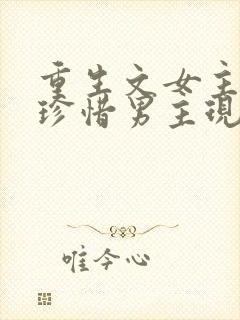 重生文女主
珍惜男主现
唯今心